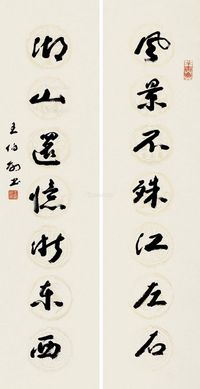 风景不殊江左右
湖山還憶浙东西
王伯敏书